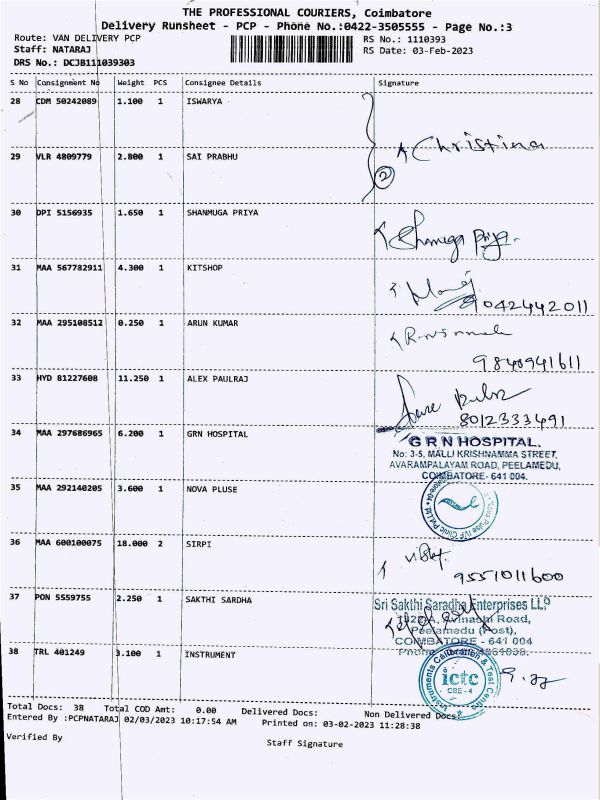 THE PROFESSIONAL COURIERS, Coimbatore
Delivery Runsheet - PCP - Phone No.:0422-3505555 - Page No.:3
Route: VAN DELIVERY PCP RS No.: 1110393
Staff: NATARAJ RS Date: 03-Feb-2023
DRS No.: DCJB111039303
S No Consignment No Weight PCS Consignee Details Signature
28 CDM 50242089 1.100 1 ISWARYA
Christina
29 VLR 4809779 2.800 1 SAI PRABHU
2
30 DPI 5156935 1.650 1 SHANMUGA PRIYA
Shamuga priya
31 MAA 567782911 4.300 1 KITSHOP
Manoj
9042442011
32 MAA 295108512 0.250 1 ARUN KUMAR
9840941611
33 HYD 81227608 11.250 1 ALEX PAULRAJ
8012333491
34 MAA 297686965 6.200 1 GRN HOSPITAL
GRN HOSPITAL.
No: 3-5, MALLI KRISHNAMMA STREET,
AVARAMPALAYAM ROAD, PEELAMEDU,
COIMBATORE- 641 004.
35 MAA 292140205 3.600 1 NOVA PLUSE
36 MAA 600100075 18.000 2 SIRPI
9551011600
37 PON 5559755 2.250 1 SAKTHI SARDHA
Sri Sakthi Saradha Enterprises LLP
Avinashi Road,
Peelamedu (Post),
COIMBATORE - 641 004
38 TRL 401249 3.100 1 INSTRUMENT
Instruments Calibration & Test Centre
ictc
CBE - 4
Total Docs: 38 Total COD Amt: 0.00 Delivered Docs: Non Delivered Docs:
Entered By :PCPNATARAJ 02/03/2023 10:17:54 AM Printed on: 03-02-2023 11:28:38
Verified By Staff Signature